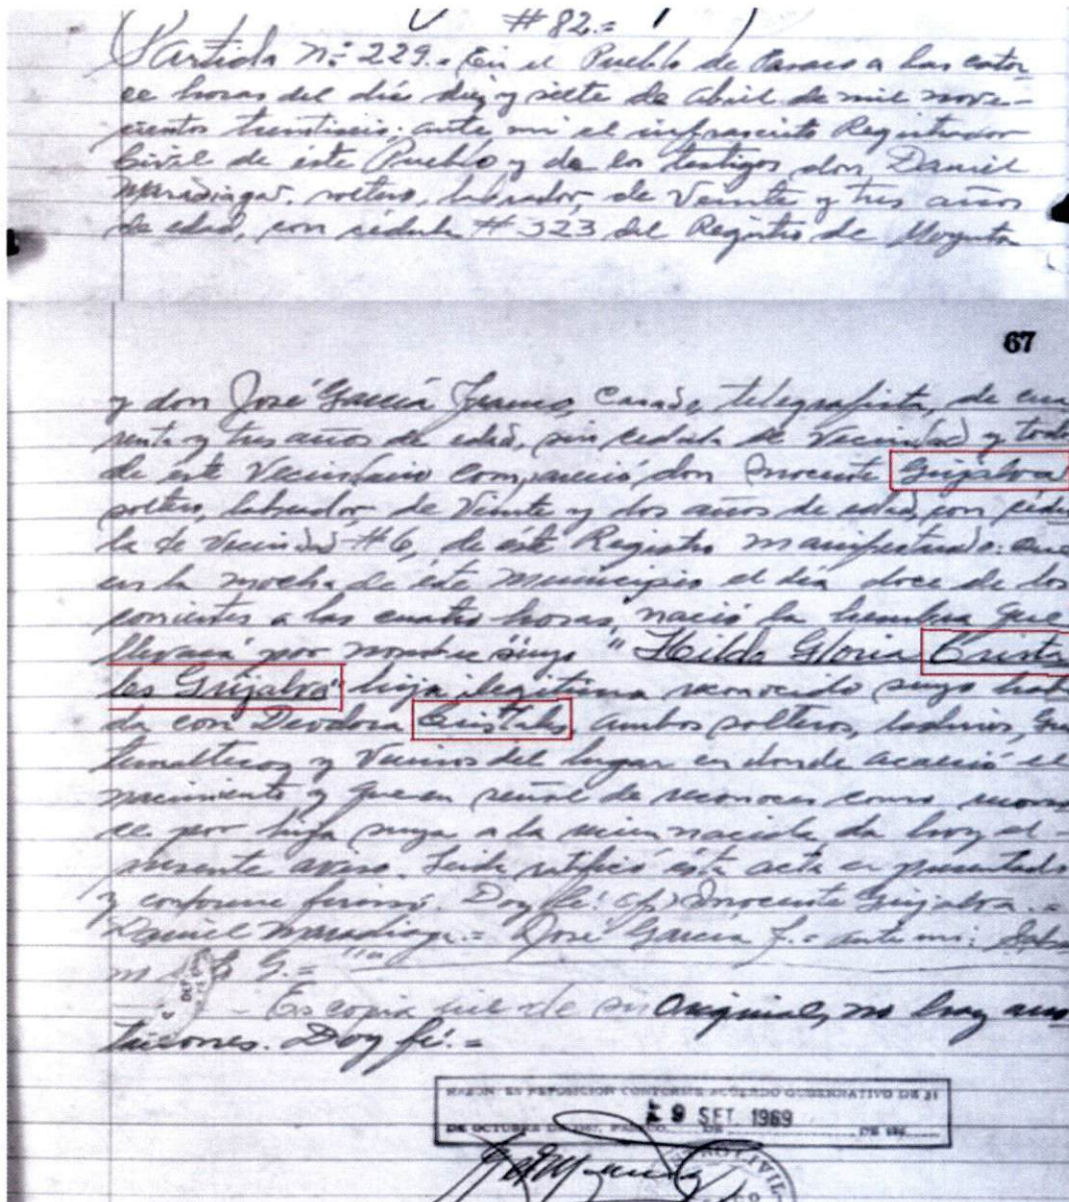 # 82.=
Partida Nº 229.= En el Pueblo de Pasaco a las cator
ce horas del día diez y siete de abril de mil nove-
cientos treintiseis; ante mi el infrascrito Registrador
Civil de éste Pueblo y de los testigos don Daniel
Maradiaga, soltero, labrador, de Veinte y tres años
de edad, con cédula # 323 del Registro de Moyuta
67
y don José García Franco, casado, telegrafista, de cua
renta y tres años de edad, sin cedula de Vecindad y todos
de éste Vecindario compareció don Inocente Grijalva
soltero, labrador, de Veinte y dos años de edad, con cédu
la de vecindad #6, de éste Registro manifestando: que
en la mocha de éste Municipio el día doce de los
corrientes a las cuatro horas, nació la hembra que
llevará por nombre suyo "Hilda Gloria Crista
les Grijalva" hija ilegitima reconocido suyo habi
da con Deodora Cristales, ambos solteros, ladinos, gua
temaltecos y Vecinos del lugar en donde acaeció el
nacimiento, y que en señal de reconocer como recono
ce por hija suya a la recien nacida, da hoy el-
presente aviso. Leida ratificó ésta acta en presentado
y conforme firmó. Doy fé: (f) Inocente Grijalva.=
Daniel Maradiaga.= José García F.= ante mi:
G.=
Es copia fiel de su Original, no hay ano
taciones. Doy fé.=
RAZON: ES REPOSICION CONFORME ACUERDO GUBERNATIVO DE 31
DE OCTUBRE DE PASACO DE 9 SET. 1969 DE 19
CIVIL